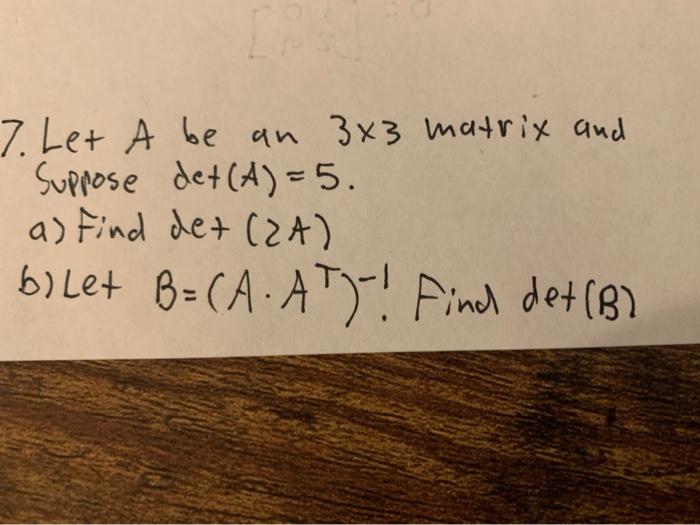 7. Let A be an 3x3 matrix and
Suppose det(A) = 5.
a) Find det (2A)
b) Let B = (A · Aᵀ)⁻¹. Find det(B)